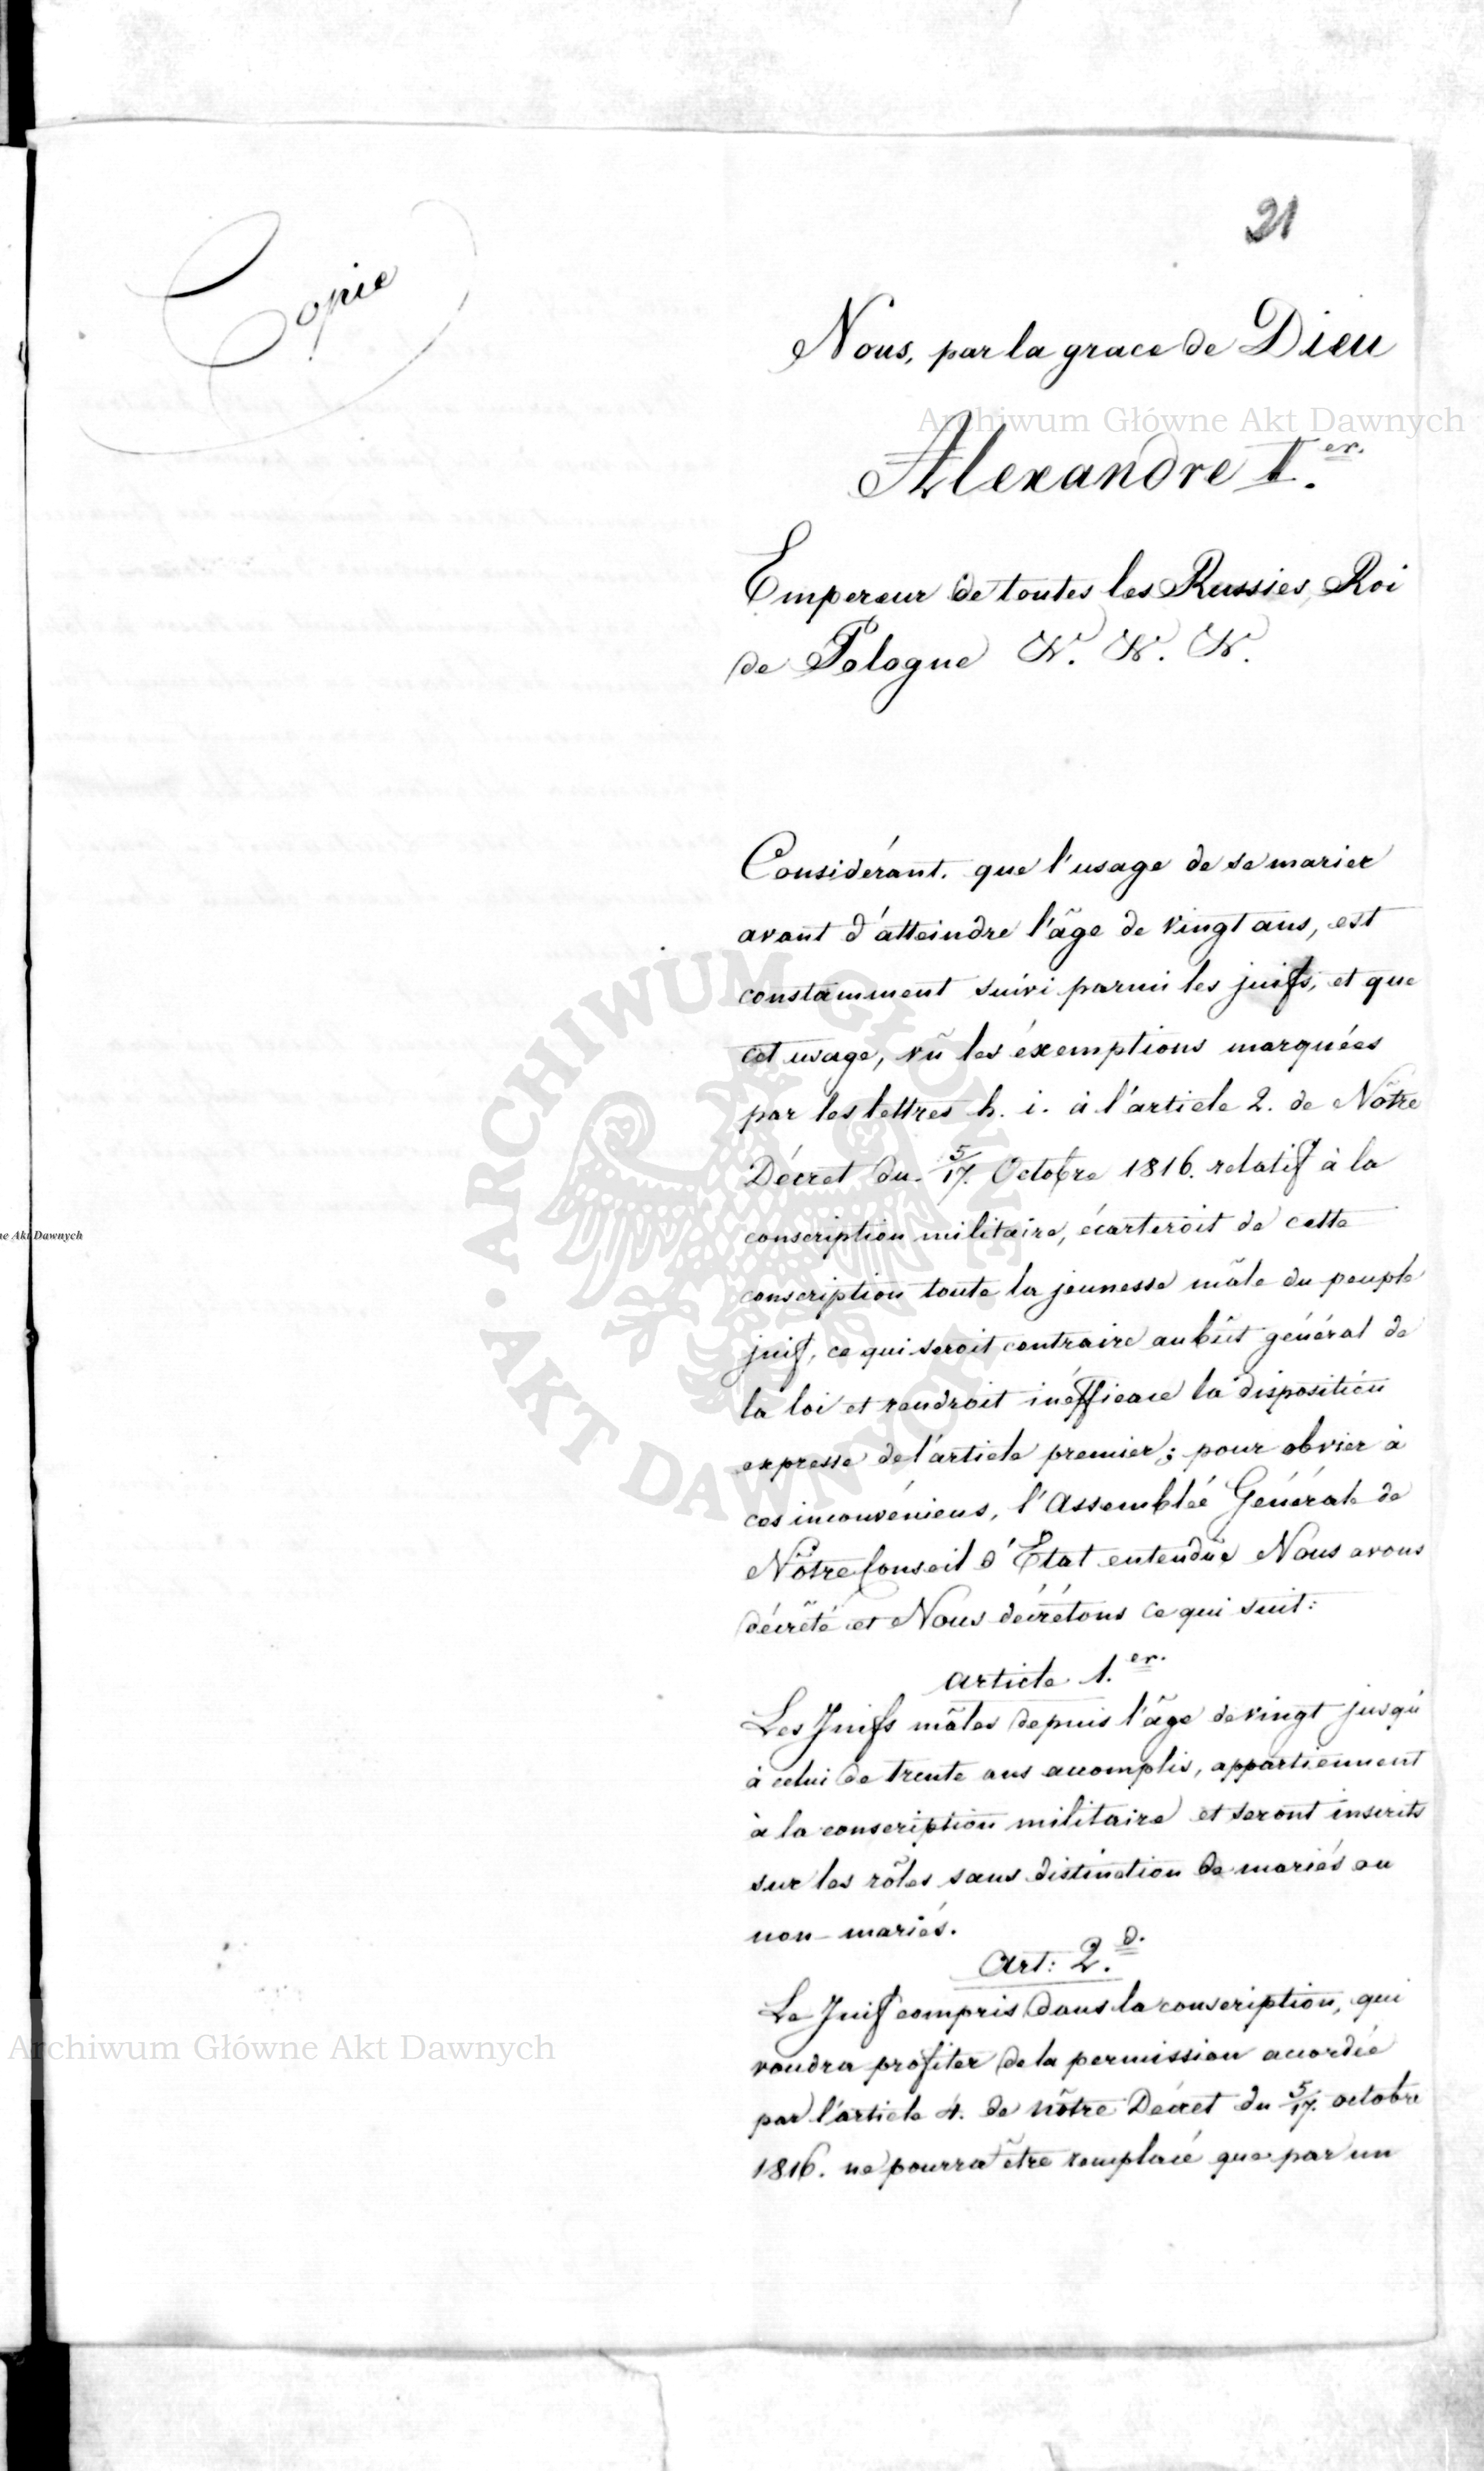 21
Copie
Nous, par la grace de Dieu
Alexandre I.er.
Empereur de toutes les Russies, Roi
de Pologne &. &. &.
Considérant. que l'usage de se marier
avant d'atteindre l'âge de vingt ans, est
constamment suivi parmi les juifs, et que
cet usage, vû les éxemptions marquées
par les lettres h. i. à l'article 2. de Nôtre
Décret du 5/17. Octobre 1816. relatif à la
conscription militaire, écarteroit de cette
conscription toute la jeunesse mâle du peuple
juif, ce qui seroit contraire au bût général de
la loi et rendroit inéfficace la disposition
expresse de l'article premier; pour obvier à
ces inconvéniens, l'Assemblée Générale de
Nôtre Conseil d'Etat entendüe Nous avons
décrêté et Nous décrétons ce qui suit:
article 1.er.
Les Juifs mâles depuis l'âge de vingt jusqu'
à celui de trente ans accomplis, appartiennent
à la conscription militaire et seront inscrits
sur les rôles sans distinction de mariés ou
non-mariés.
Art: 2.d.
Le Juif compris dans la conscription, qui
voudra profiter de la permission accordée
par l'article 4. de nôtre Décret du 5/17. octobre
1816. ne pourra être remplacé que par un
Archiwum Główne Akt Dawnych
ARCHIWUM GŁÓWNE • AKT DAWNYCH •
ne Akt Dawnych
Archiwum Główne Akt Dawnych